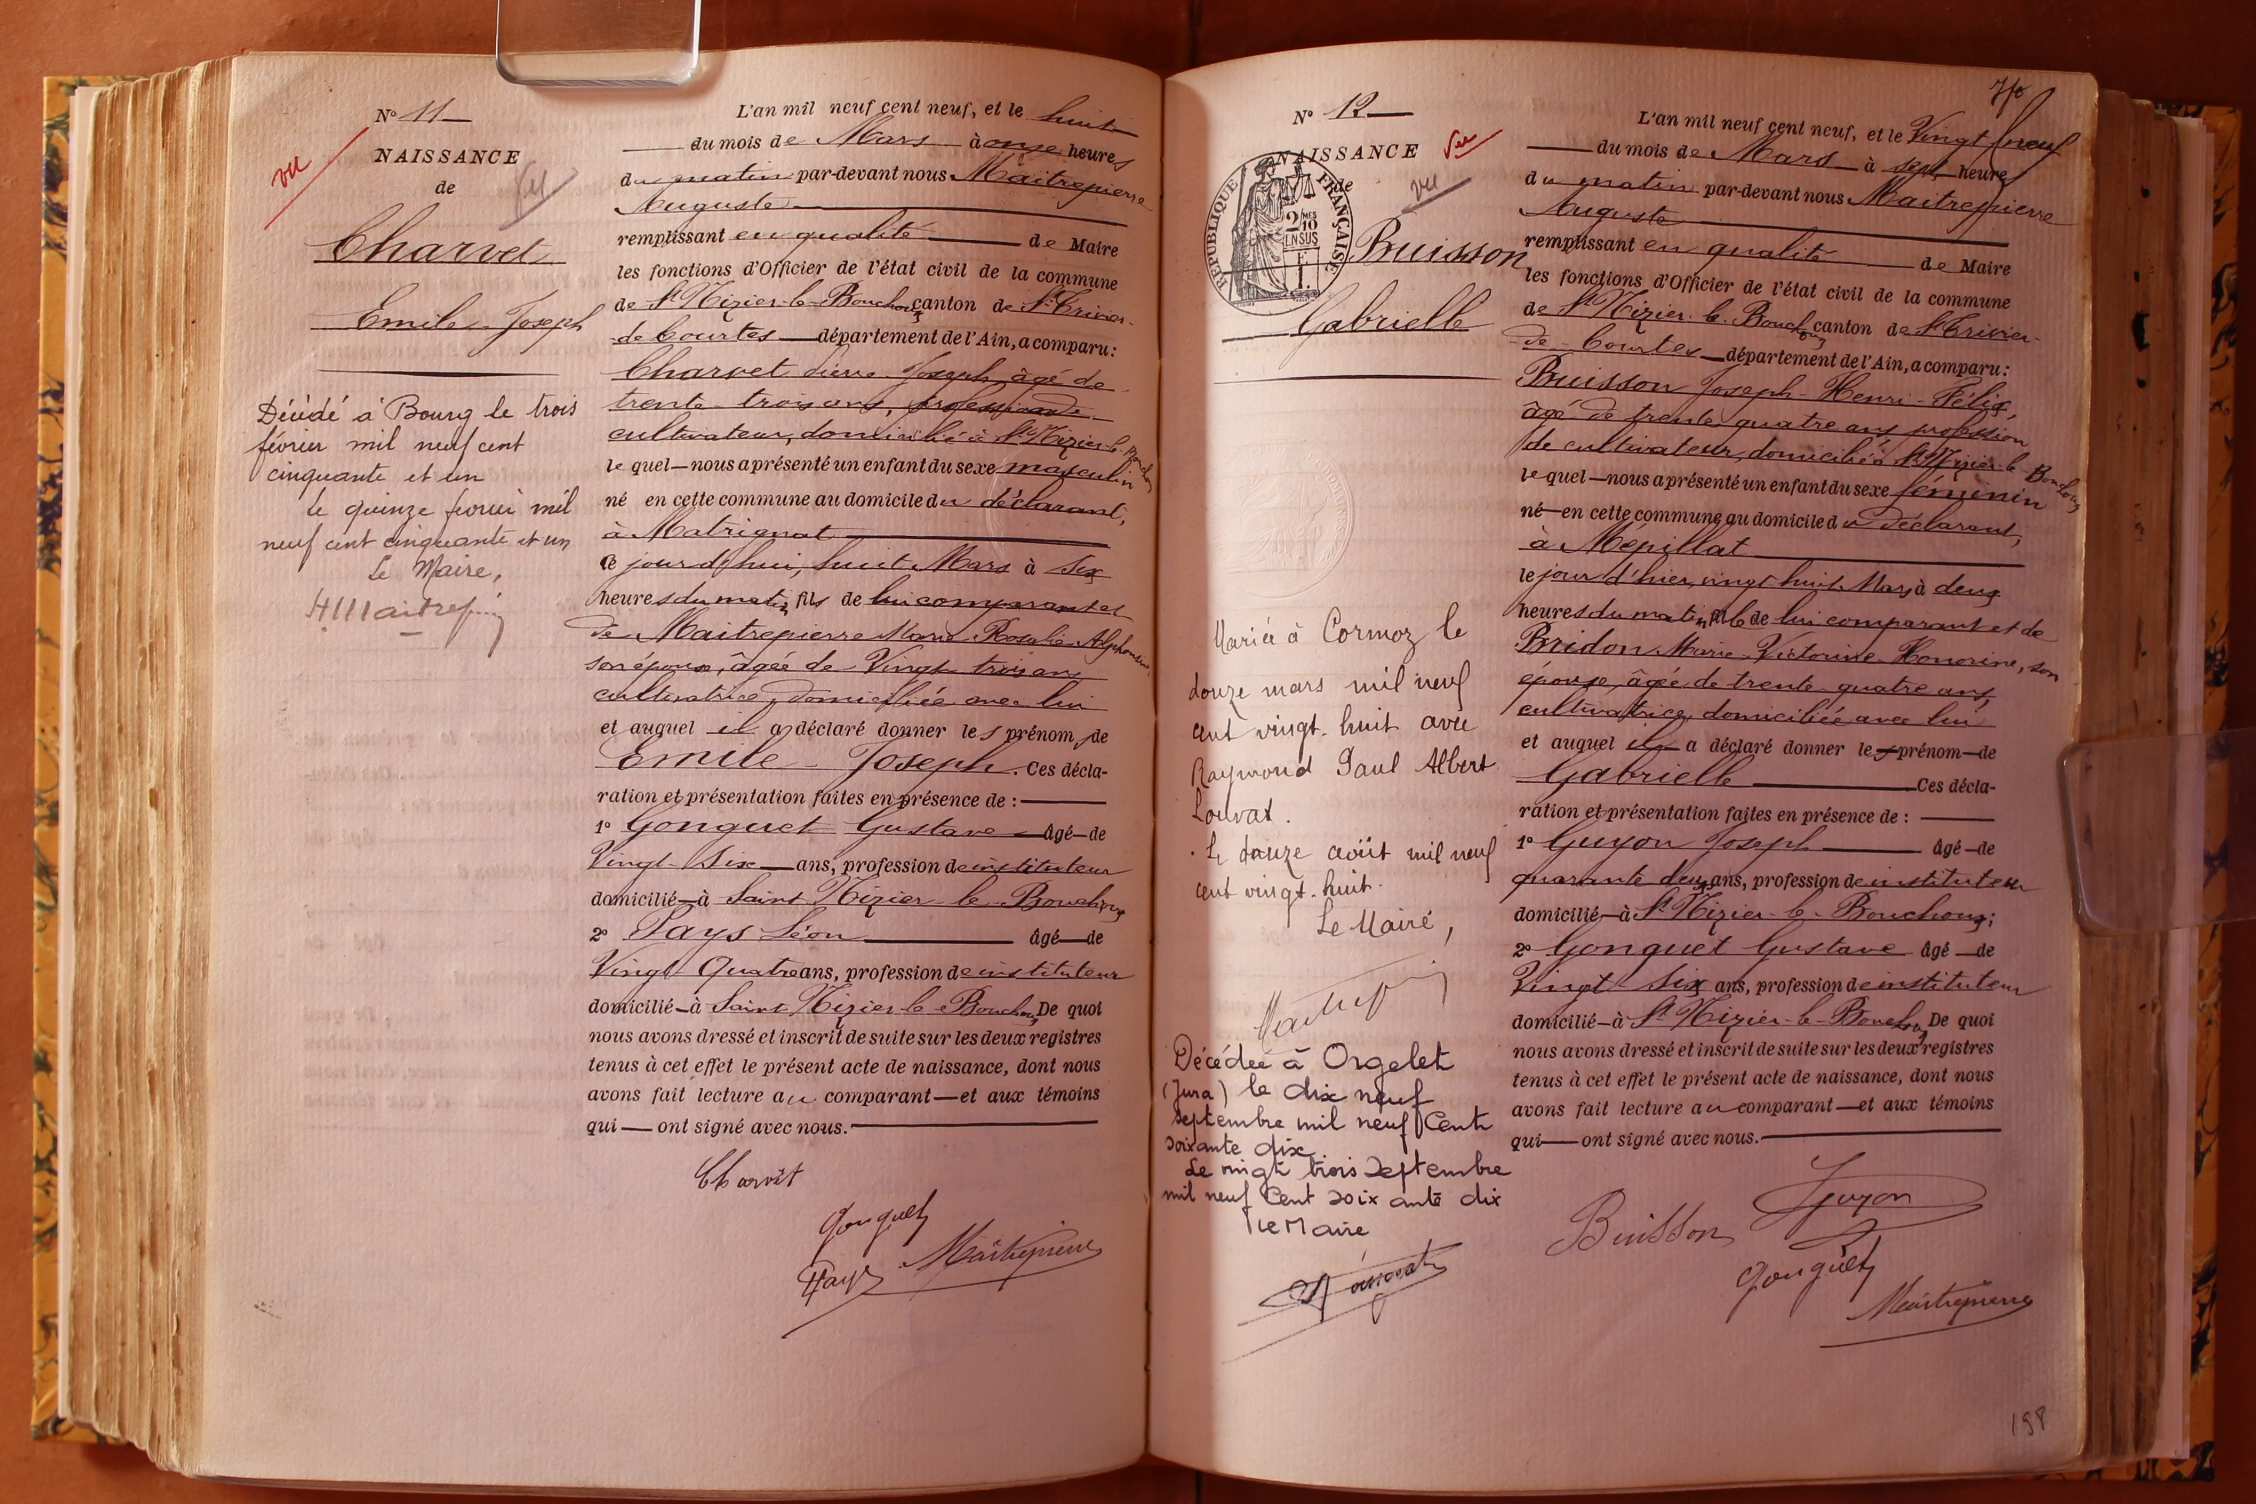 N° 11
NAISSANCE
de
vu
Vu
Charvet
Emile Joseph
Décédé à Bourg le trois
février mil neuf cent
cinquante et un
le quinze février mil
neuf cent cinquante et un
Le Maire,
L'an mil neuf cent neuf, et le huit
du mois de Mars à onze heures
du matin par-devant nous Maitrepierre
Auguste
remplissant en qualité de Maire
les fonctions d'Officier de l'état civil de la commune
de St Nizier-le-Bouchoux canton de St Trivier-
de Courtes département de l'Ain, a comparu:
Charvet Pierre Joseph, âgé de
trente trois ans, profession de
cultivateur, domicilié à St Nizier-le-Bouchoux
lequel nous a présenté un enfant du sexe masculin
né en cette commune au domicile du déclarant,
à Matrignat
ce jour d'hui, huit Mars à six
heures du matin, fils de lui comparant et
de Maitrepierre Marie Rosalie Alphonsine
son épouse, âgée de Vingt trois ans
cultivatrice, domiciliée avec lui
et auquel il a déclaré donner les prénoms de
Emile - Joseph. Ces décla-
ration et présentation faites en présence de :
1° Gonguet Gustave âgé de
Vingt six ans, profession de instituteur
domicilié à Saint Nizier-le-Bouchoux
2° Pays Léon âgé de
Vingt Quatre ans, profession de instituteur
domicilié à Saint Nizier-le-Bouchoux De quoi
nous avons dressé et inscrit de suite sur les deux registres
tenus à cet effet le présent acte de naissance, dont nous
avons fait lecture au comparant et aux témoins
qui ont signé avec nous.
Charvet
Gonguet
Pays
Maitrepierre
N° 12
NAISSANCE
de
Vu
vu
RÉPUBLIQUE FRANÇAISE
2 MES
10
EN SUS
Buisson
Gabrielle
Mariée à Cormoz le
douze mars mil neuf
cent vingt-huit avec
Raymond Paul Albert
Louvat.
le douze août mil neuf
cent vingt-huit.
Le Maire,
Décédée à Orgelet
(Jura) le dix neuf
septembre mil neuf Cent
soixante dix
Le vingt trois Septembre
mil neuf Cent soixante dix
Le Maire
L'an mil neuf cent neuf, et le Vingt neuf
du mois de Mars à sept heures
du matin par-devant nous Maitrepierre
Auguste
remplissant en qualité de Maire
les fonctions d'Officier de l'état civil de la commune
de St Nizier-le-Bouchoux canton de St Trivier-
de-Courtes département de l'Ain, a comparu:
Buisson Joseph-Henri-Félix,
âgé de trente quatre ans profession
de cultivateur, domicilié à St Nizier-le-Bouchoux
lequel nous a présenté un enfant du sexe féminin
né en cette commune au domicile du déclarant,
à Mépillat
le jour d'hier, vingt huit Mars à deux
heures du matin, fille de lui comparant et de
Bridon Marie-Victorine-Honorine, son
épouse, âgée de trente quatre ans,
cultivatrice, domiciliée avec lui
et auquel il a déclaré donner le prénom de
Gabrielle Ces décla-
ration et présentation faites en présence de :
1° Guyon Joseph âgé de
quarante deux ans, profession de instituteur
domicilié à St Nizier-le-Bouchoux;
2° Gonguet Gustave âgé de
Vingt six ans, profession de instituteur
domicilié à St Nizier-le-Bouchoux De quoi
nous avons dressé et inscrit de suite sur les deux registres
tenus à cet effet le présent acte de naissance, dont nous
avons fait lecture au comparant et aux témoins
qui ont signé avec nous.
Guyon
Buisson
Gonguet
Maitrepierre
198